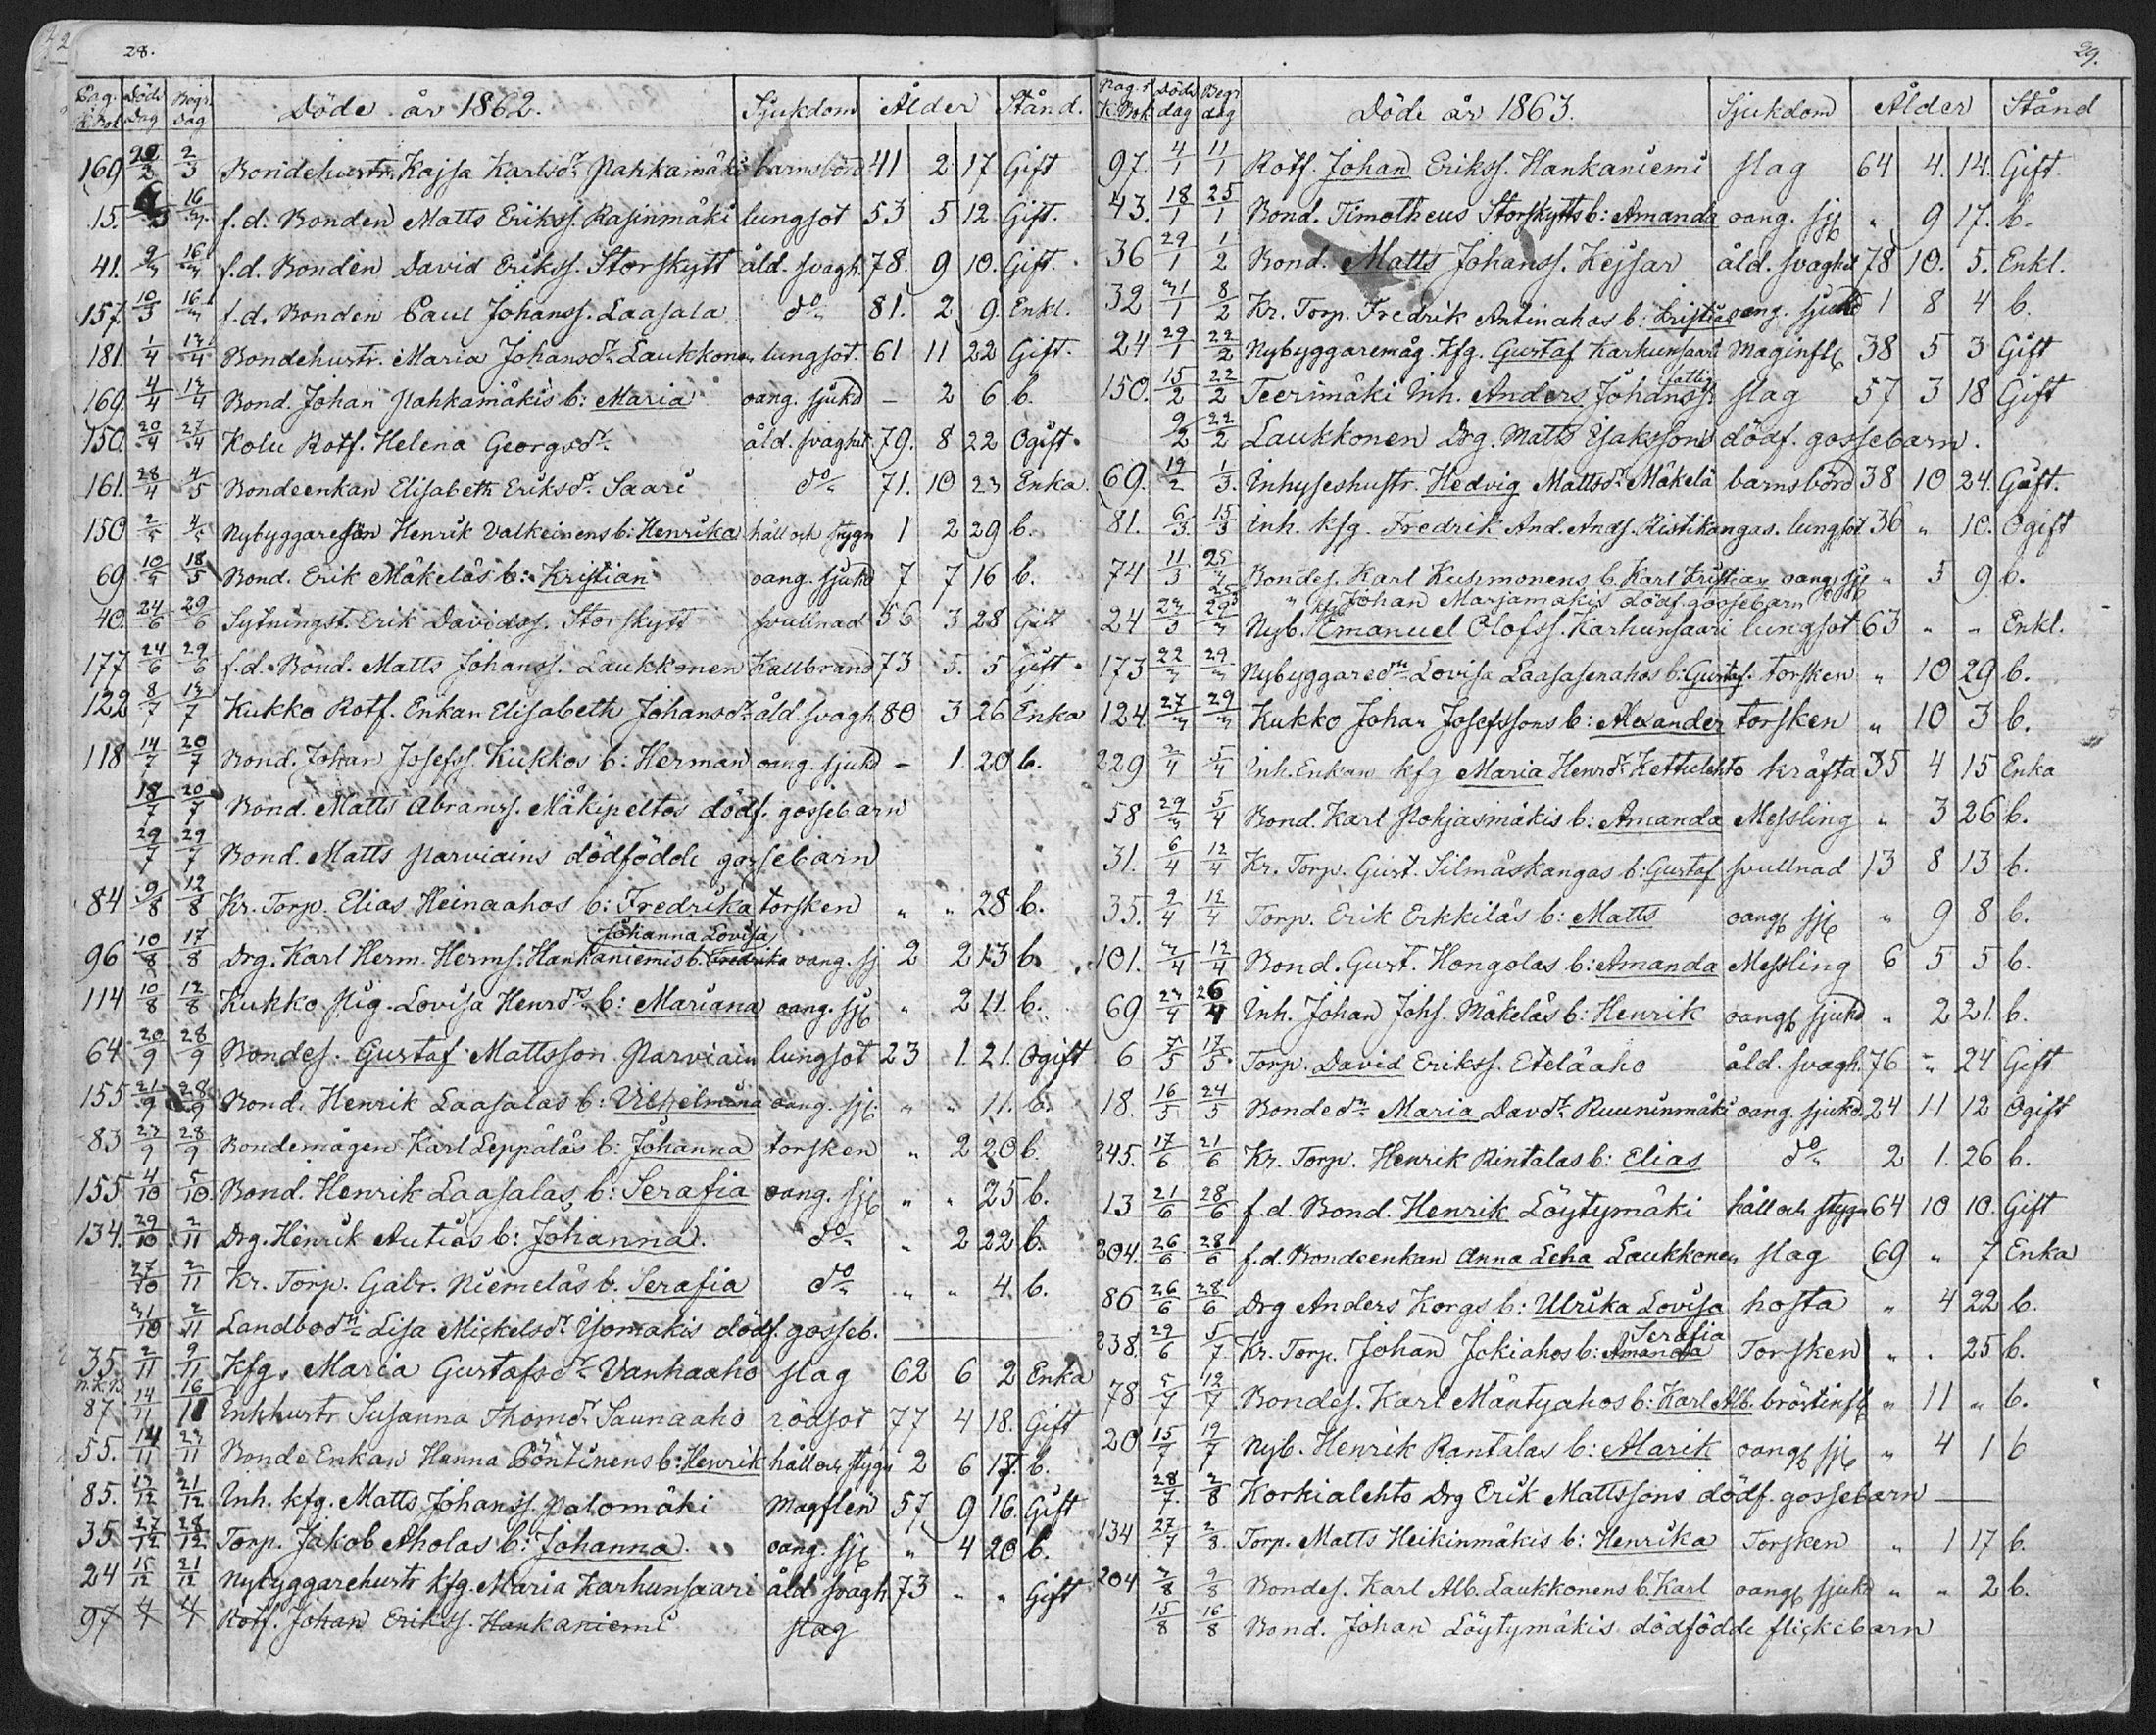 28.
Pag. K.Bok Döds Dag Begr. Dag Döde år 1862. Sjukdom Ålder Stånd.
169 2/3 Bondehustr. Kajsa Karlsdr Pahkamäki barnsbörd 41 2 17 Gift
15. f.d. Bonden Matts Erikss. Rasinmäki lungsot 53 5 12. Gift.
41. 9/3 16/3 f.d. Bonden David Erikss. Storskytt åld. svagh. 78. 9 10. Gift.
157. 10/3 16/3 f.d. Bonden Paul Johanss. Laasala do 81. 2 9. Enkl.
181. 1/4 13/4 Bondehustr. Maria Johansdr Laukkonen lungsot. 61 11 22 Gift.
169. 4/4 13/4 Bond. Johan Pahkamäkis b: Maria oang. sjukd – 2 6 b.
150. 20/4 27/4 Kolu Rotf. Helena Georgsdr åld. svaghet 79. 8 22 Ogift.
161. 28/4 4/5 Bondeenkan Elisabeth Eriksdr Saari do 71. 10 23 Enka.
150 2/5 4/5 Nybyggareson Henrik Valkeinens b: Henrika håll och stygn 1 2 29 b.
69 10/5 18/5 Bond. Erik Mäkeläs b: Kristian oang. sjukd 7 7 16 b.
40. 24/6 29/6 Sytningst. Erik Davidss. Storskytt svullnad 56 3 28 Gift
177 24/6 29/6 f.d. Bond. Matts Johanss. Laukkonen Kallbrand 73 5. 5 Gift.
122 8/7 13/7 Kukko Rotf. Enkan Elisabeth Johansdr åld. svagh 80 3 26 Enka
118 14/7 20/7 Bond. Johan Josefss. Kukkos b: Herman oang. sjukd – 1 20 b.
18/7 20/7 Bond. Matts Abramss. Mäkipeltos dödf. gossebarn
29/7 29/7 Bond. Matts Parviains dödfödde gossebarn
84 9/8 12/8 Kr. Torp. Elias Heinaahos b: Fredrika torsken „ „ 28 b.
Johanna Lovisa
96 10/8 17/8 Drg. Karl Herm. Herms. Hankaniemis b. Fredrika oang. sj 2 2 13 b.
114 10/8 12/8 Kukko Pig. Lovisa Henrdrs b: Mariana oang. sj „ 2 11. b.
64 20/9 28/9 Bondes. Gustaf Mattsson Parviain lungsot 23 1. 21. Ogift
155 21/9 28/9 Bond. Henrik Laasalas b: Vilhelmina oang. sj. „ „ 11. b.
83 23/9 28/9 Bondemågen Karl Leppäläs b: Johanna torsken „ 2 20 b.
155 4/10 5/10. Bond. Henrik Laasalas b: Serafia oang. sj „ „ 25 b.
134. 29/10 2/11 Drg. Henrik Autiås b: Johanna. do „ 2 22 b.
27/10 2/11 Kr. Torp. Gabr. Niemeläs b. Serafia do „ „ 4. b.
31/10 2/11 Landbodn Lisa Mickelsdr Yomäkis dödf. gosseb.
35 2/11 9/11 Kfg. Maria Gustafsdr Vanhaaho slag 62 6 2 Enka
N.K.B.
87 14/11 16/11 Inhhustr Susanna Thomdr Saunaaho rödsot 77 4 18. Gift
55. 14/11 23/11 Bonde Enkan Hanna Pöntinens b: Henrik håll och stygn 2 6 17. b.
85. 13/12 21/12 Inh. kfg. Matts Johanss. Palomäki Magflen 57 9 16. Gift
35. 27/12 28/12 Torp. Jakob Aholas b: Johanna. oang. sj „ 4 20 b.
24 15/12 21/12 Nybyggarehustr kfg. Maria Karhunsaari åld svagh 73 „ „ Gift
97 4 4 Rotf. Johan Erikss. Hankaniemi slag
29.
Pag. K.Bok Döds dag Begr dag Döde år 1863. Sjukdom Ålder Stånd
97. 4/1 11/1 Rotf. Johan Erikss. Hankaniemi slag 64 4. 14. Gift.
43. 18/1 25/1 Bond. Timotheus Storskytts b: Amanda oang. sj „ 9 17. b.
36 29/1 1/2 Bond. Matts Johanss. Kejsar åld. svaghet 78 10. 5. Enkl.
32 31/1 8/2 Kr. Torp. Fredrik Antinahos b: oang. sjukd 1 8 4 b.
24 29/1 22/2 Nybyggaremåg. Kfg. Gustaf Karhunsaari Maginfl 38 5 3 Gift
150. 15/2 22/2 Teerimäki Inh. Anders Johanss. fattig slag 57 3 18 Gift
9/2 22/2 Laukkonen Drg. Matts Isakssons dödf. gossebarn.
69. 19/2 1/3. Inhyseshustr. Hedvig Mattsdr Mäkelä barnsbörd 38 10 24. Gift.
81. 6/3 15/3 Inh. kfg. Fredrik And. Ands. Ristikangas. lungsot 36 „ 10. Ogift
74 11/3 25/3 Bondes. Karl Kuhmonens b. Karl Kristian oang. sj „ 5 9 b.
„ Johan Marjamäkis dödf. gossebarn
24 23/3 29/3 Nyb. kfg Emanuel Olofss. Karhunsaari lungsot 63 „ „ Enkl.
173 22/3 29/3 Nybyggaredn Lovisa Laasasenahos b: Gustaf. torsken „ 10 29 b.
124. 27/3 29/3 Kukko Johan Josefssons b: Alexander torsken „ 10 3 b.
229 2/4 5/4 Inh. Enkan kfg Maria Henrdr Kettulehto kräfta 35 4 15 Enka
58 29/3 5/4 Bond. Karl Pohjasmäkis b: Amanda Messling „ 3 26 b.
31. 6/4 12/4 Kr. Torp. Gust. Silmäskangas b: Gustaf svullnad 13 8 13 b.
35. 9/4 12/4 Torp. Erik Erkkiläs b: Matts oang sj „ 9 8 b.
101. 3/4 12/4 Bond. Gust. Hongolas b: Amanda Messling 6 5 5 b.
69 23/4 26/4 Inh. Johan Johs. Mäkeläs b: Henrik oang sjukd „ 2 21. b.
6 7/5 17/5. Torp. David Erikss. Eteläaho åld. svagh. 76 „ 24 Gift
18. 16/5 24/5 Bondedn Maria Davdr Ruuninmäki oang. sjukd. 24 11 12 Ogift
245. 17/6 21/6 Kr. Torp. Henrik Rintalas b: Elias do 2 1. 26 b.
13 21/6 28/6 f.d. Bond. Henrik Löytymäki håll och stygn 64 10 10. Gift
204. 26/6 28/6 f.d. Bondeenkan Anna Lena Laukkonen slag 69 „ 7 Enka
86 26/6 28/6 Drg Anders Korgs b: Ulrika Lovisa hosta „ 4 22 b.
Serafia
238. 29/6 5/7. Kr. Torp. Johan Jokiahos b: Amanda Torsken „ „ 25 b.
78 5/7 12/7 Bondes. Karl Mäntyahos b: Karl Alb. bröstinfl „ 11 „ b.
20 15/7 19/7 Nyb. Henrik Rantalas b: Alarik oang sj „ 4 1 b
28/7. 2/8 Korkialehto Drg Erik Mattssons dödf. gossebarn
134 27/7 2/8. Torp. Matts Heikinmäkis b: Henrika Torsken „ 1 17 b.
204 3/8 9/8 Bondes. Karl Alb. Laukkonens b. Karl oang sjukd „ „ 2 b.
15/8 16/8 Bond. Johan Löytymäkis dödfödde flickebarn